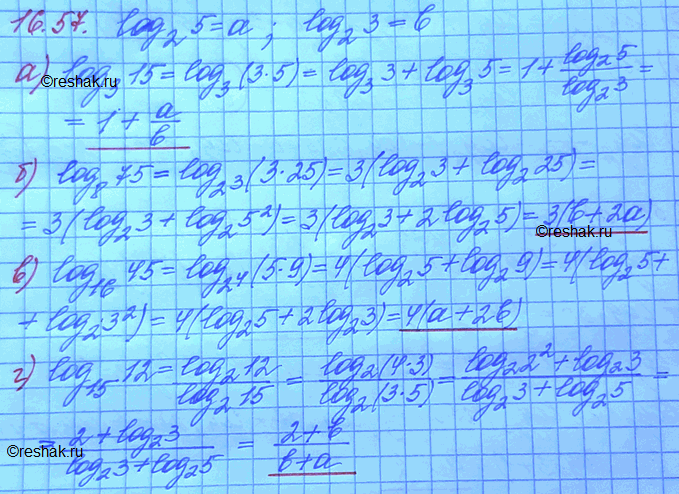 16.57. log₂ 5 = a ; log₂ 3 = b
а) log₃ 15 = log₃ (3·5) = log₃ 3 + log₃ 5 = 1 + log₂5/log₂3 =
©reshak.ru
= 1 + a/b
б) log₈ 75 = log₂³ (3·25) = 3(log₂3 + log₂ 25) =
= 3(log₂3 + log₂5²) = 3(log₂3 + 2 log₂5) = 3(b + 2a)
©reshak.ru
в) log₁₆ 45 = log₂⁴ (5·9) = 4(log₂5 + log₂9) = 4(log₂5 +
+ log₂3²) = 4(log₂5 + 2log₂3) = 4(a + 2b)
г) log₁₅ 12 = log₂12/log₂15 = log₂(4·3)/log₂(3·5) = log₂2² + log₂3/log₂3 + log₂5 =
= 2 + log₂3/log₂3 + log₂5 = 2 + b/b + a
©reshak.ru
©reshak.ru